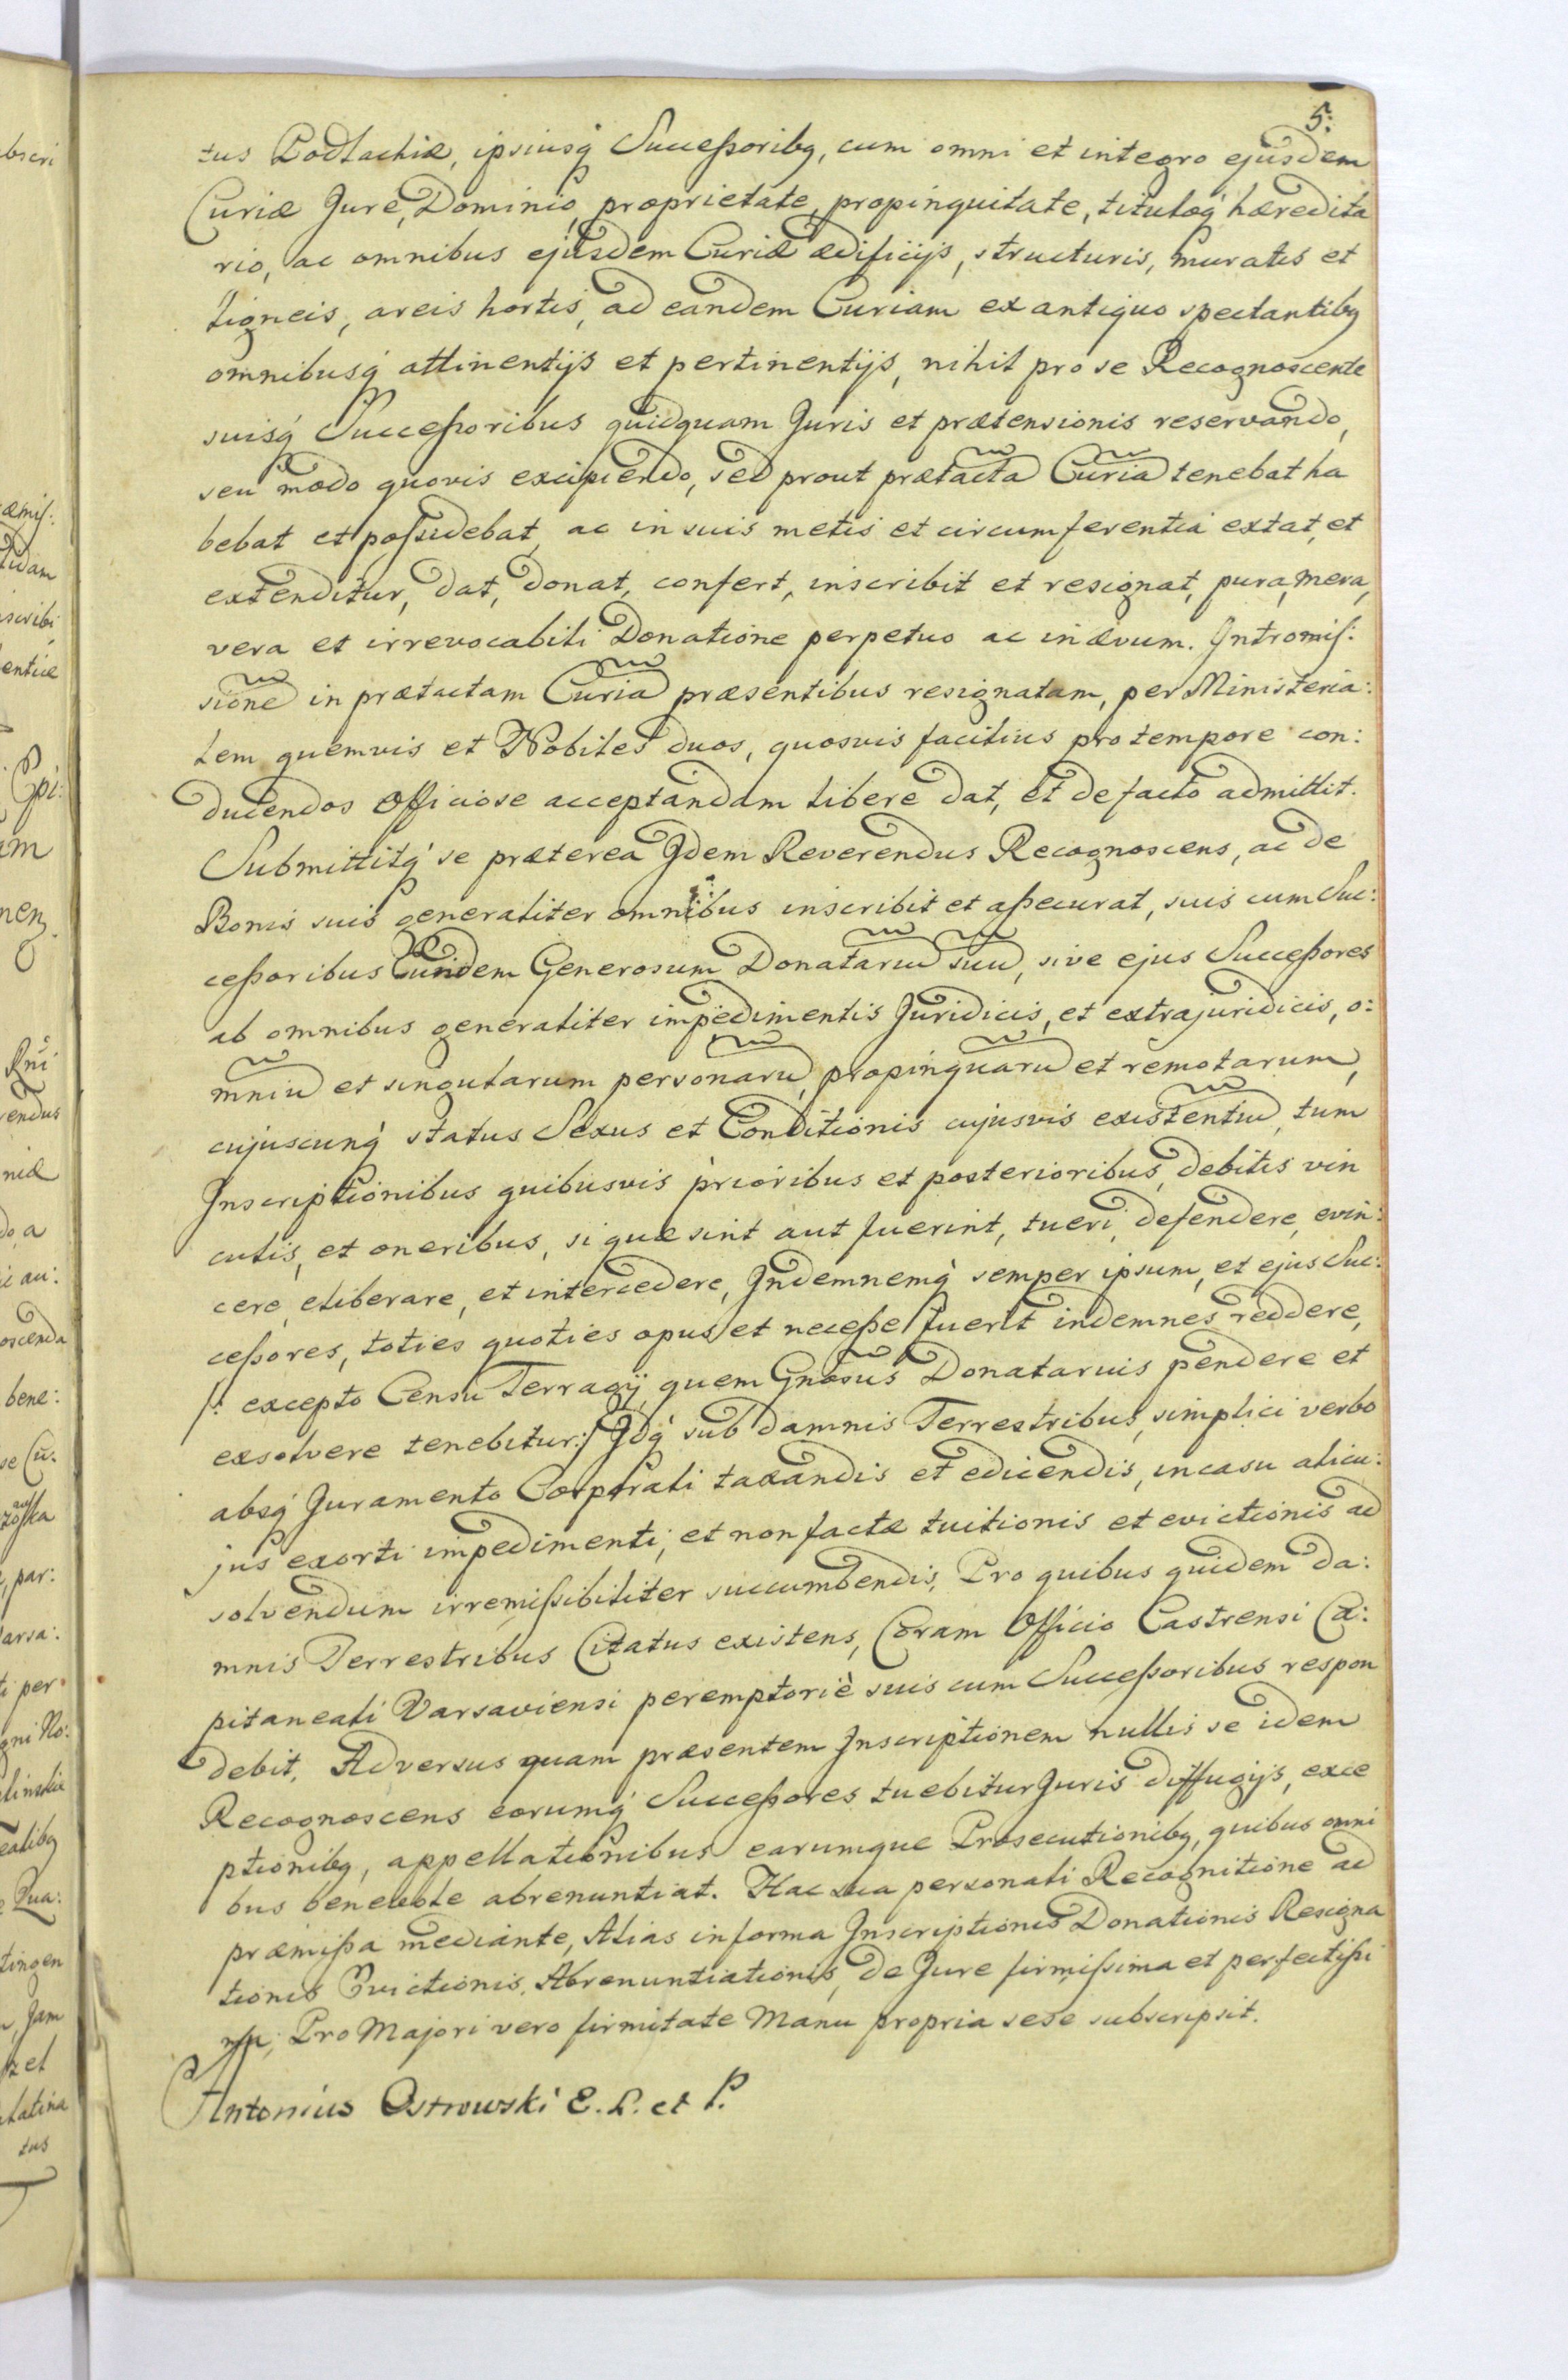 5.
tus Podlachiæ, ipsiusq́ Successoribq, cum omni et integro ejusdem
Curiæ Jure, Dominio, proprietate, propinquitate, tituloq́ hæredita
rio, ac omnibus ejusdem Curiæ ædificijs, structuris, muratis et
ligneis, areis hortis, ad eandem Curiam ex antiquo spectantibq
omnibusq́ attinentijs et pertinentijs, nihil pro se Recognoscente
suisq́ Successoribus quidquam Juris et prætensionis reservando,
seu modo quovis excipiendo, sed prout prætacta Curia tenebat ha
bebat et possidebat, ac in suis metis et circumferentia extat, et
extenditur, dat, donat, confert, inscribit et resignat, pura, mera,
vera et irrevocabili Donatione perpetuo ac in ævum. Intromis:
sione in prætactam Curia præsentibus resignatam, per Ministeria:
lem quemvis et Nobiles duos, quosvis facilius pro tempore con:
ducendos Officiose acceptandam libere dat, et de facto admittit.
Submittitq́ se præterea Idem Reverendus Recognoscens, ac de
Bonis suis generaliter omnibus inscribit et assecurat, suis cum Suc:
cessoribus Eundem Generosum Donatariu suu, sive ejus Successores
ab omnibus generaliter impedimentis Juridicis, et extrajuridicis, o:
mniu et singularum personaru, propinquaru et remotarum,
cujuscunq́ status Sexus et Conditionis cujusvis existentiu, tum
Inscriptionibus quibusvis prioribus et posterioribus, debitis vin
culis, et oneribus, si quæ sint aut fuerint, tueri, defendere, evin:
cere, eliberare, et intercedere, Indemnemq́ semper ipsum, et ejus Suc:
cessores, toties quoties opus et necesse fuerit indemnes reddere,
/: excepto Censu Terragij, quem Gnosus Donatarius pendere et
exsolvere tenebitur:/ Idq́ sub damnis Terrestribus, simplici verbo
absq́ Juramento Corporali taxandis et edicendis, in casu alicu:
jus exorti impedimenti, et non factæ tuitionis et evictionis ad
solvendum irremissibiliter succumbendis, Pro quibus quidem da:
mnis Terrestribus Citatus existens, Coram Officio Castrensi Ca:
pitaneali Varsaviensi peremptoriè suis cum Successoribus respon
debit. Adversus quam præsentem Inscriptionem nullis se idem
Recognoscens eorumq́ Successores tuebitur Juris diffugijs, exce
ptionibq, appellationibus earumque Prosecutionibq, quibus omni
bus benevole abrenuntiat. Hac sua personali Recognitione ad
præmissa mediante, Alias in forma Inscriptionis Donationis Resigna
tionis Evictionis, Abrenuntiationis, de Jure firmissima et perfectissi
ma; Pro Majori vero firmitate Manu propria sese subscripsit.
Antonius Ostrowski E. L. et P.